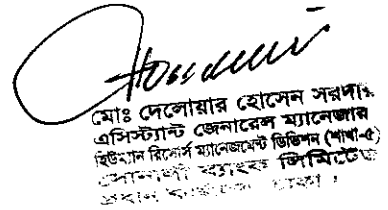 মোঃ দেলোয়ার হোসেন সরদার
এসিস্ট্যান্ট জেনারেল ম্যানেজার
হিউম্যান রিসোর্স ম্যানেজমেন্ট ডিভিশন (শাখা-৫)
সোনালী ব্যাংক লিমিটেড
প্রধান কার্যালয়, ঢাকা।